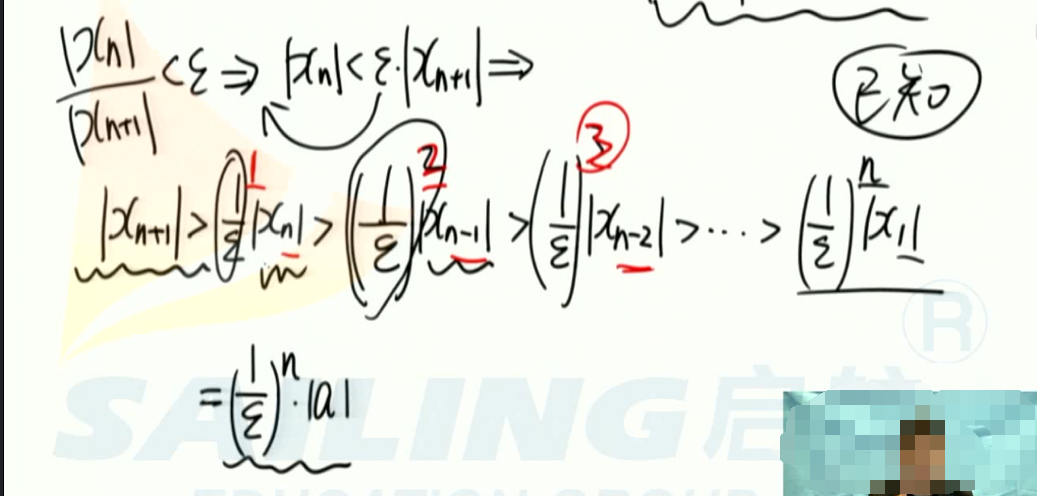 |xₙ|/|xₙ₊₁| < ε ⇒ |xₙ| < ε·|xₙ₊₁| ⇒
已知
|xₙ₊₁| > (1/ε)¹|xₙ| > (1/ε)²|xₙ₋₁| > (1/ε)³|xₙ₋₂| > ··· > (1/ε)ⁿ|x₁|
= (1/ε)ⁿ·|a|
®
SAILING启航
EDUCATION GROUP